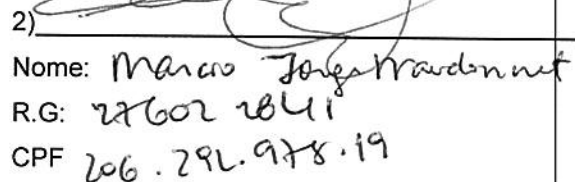 2)
Nome: Marcio Jorge
R.G: 27602 2841
CPF 206.292.978.19